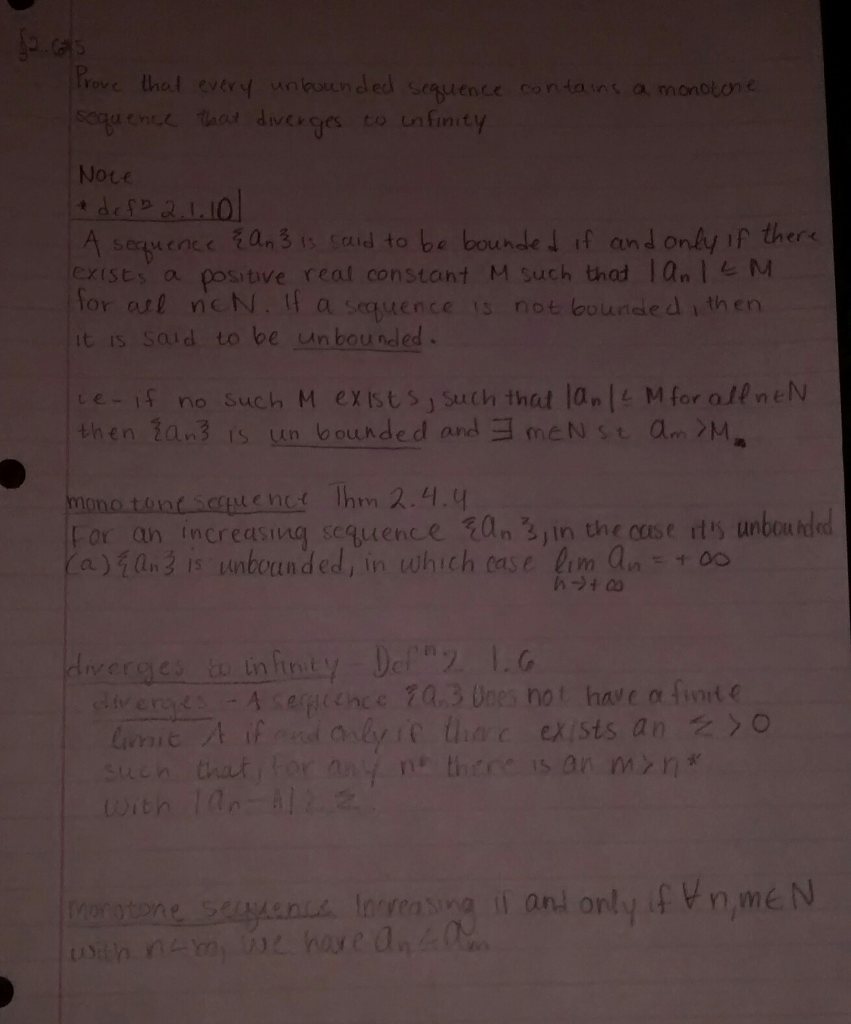 Prove that every unbounded sequence contains a monotone
sequence that diverges to infinity
Note
* defⁿ 2.1.10
A sequence {an} is said to be bounded if and only if there
exists a positive real constant M such that |an| ≤ M
for all n∈N. If a sequence is not bounded, then
it is said to be unbounded.
ie - if no such M exists, such that |an| ≤ M for all n∈N
then {an} is un bounded and ∃ m∈N st am >M.
monotone sequence Thm 2.4.4
For an increasing sequence {an}, in the case it's unbounded
(a) {an} is unbounded, in which case lim an = + ∞
n→+∞
diverges to infinity Defⁿ 2 1.6
diverges - A sequence {an} does not have a finite
limit A if and only if there exists an ε > 0
such that, for any n* there is an m>n*
with |an - A| ≥ ε.
monotone sequence Increasing if and only if ∀n,m∈N
with n<m, we have an ≤ am